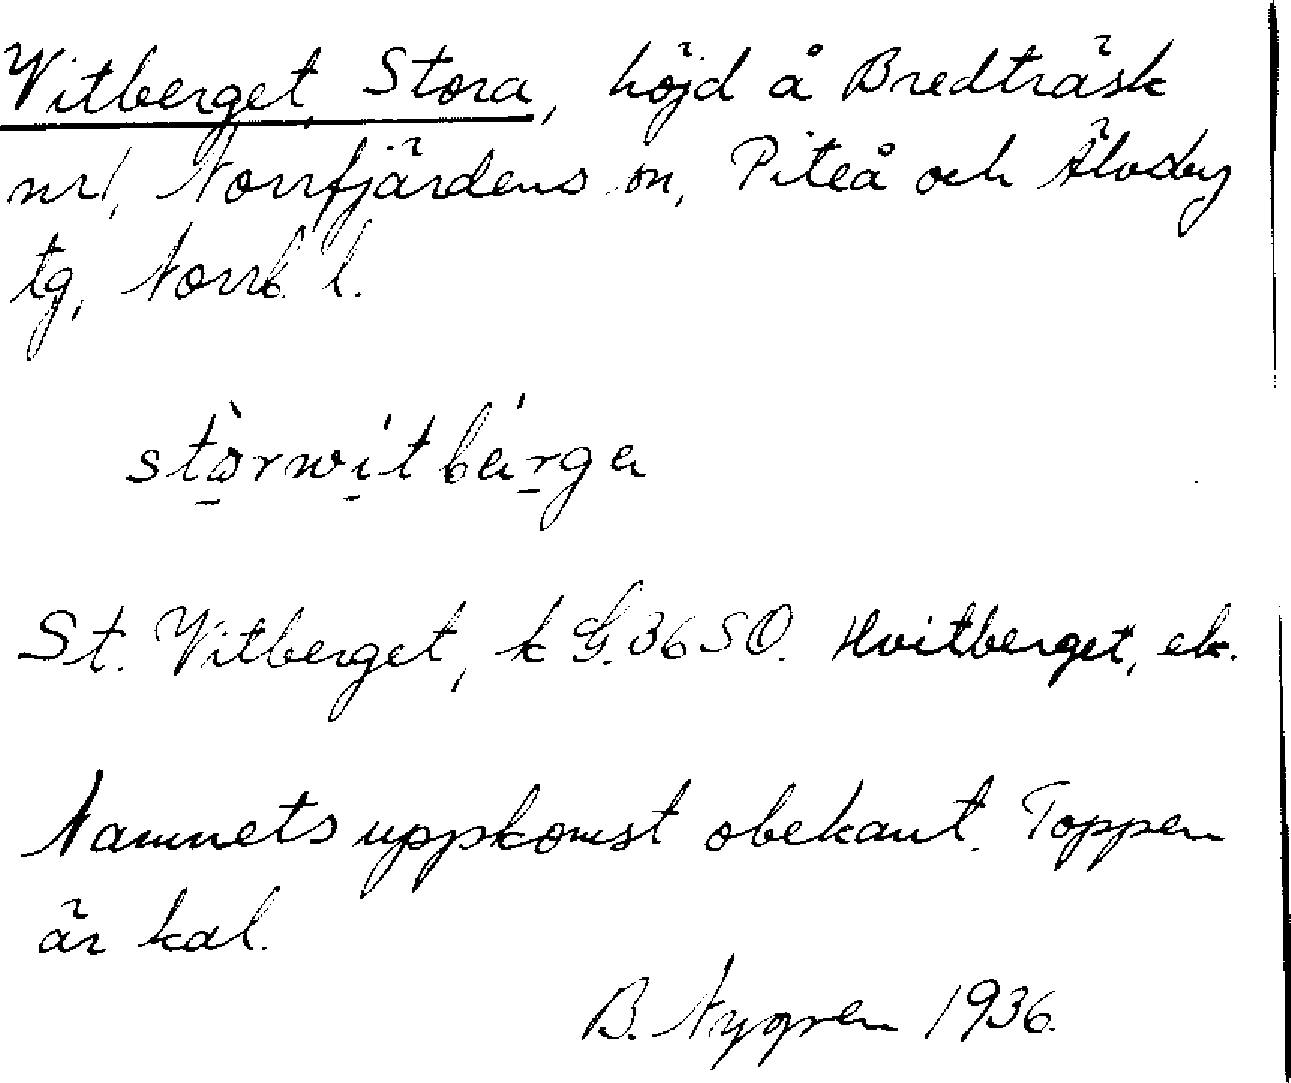 Vitberget, Stora, höjd å Bredträsk
nr 1, Norrfjärdens sn, Piteå och Älvsby
tg, Norrb. l.
stòrwítbárga
St. Vitberget, k G. 36 SO. Hvitberget, ek.
Namnets uppkomst obekant. Toppen
är kal.
B. Nygren 1936.